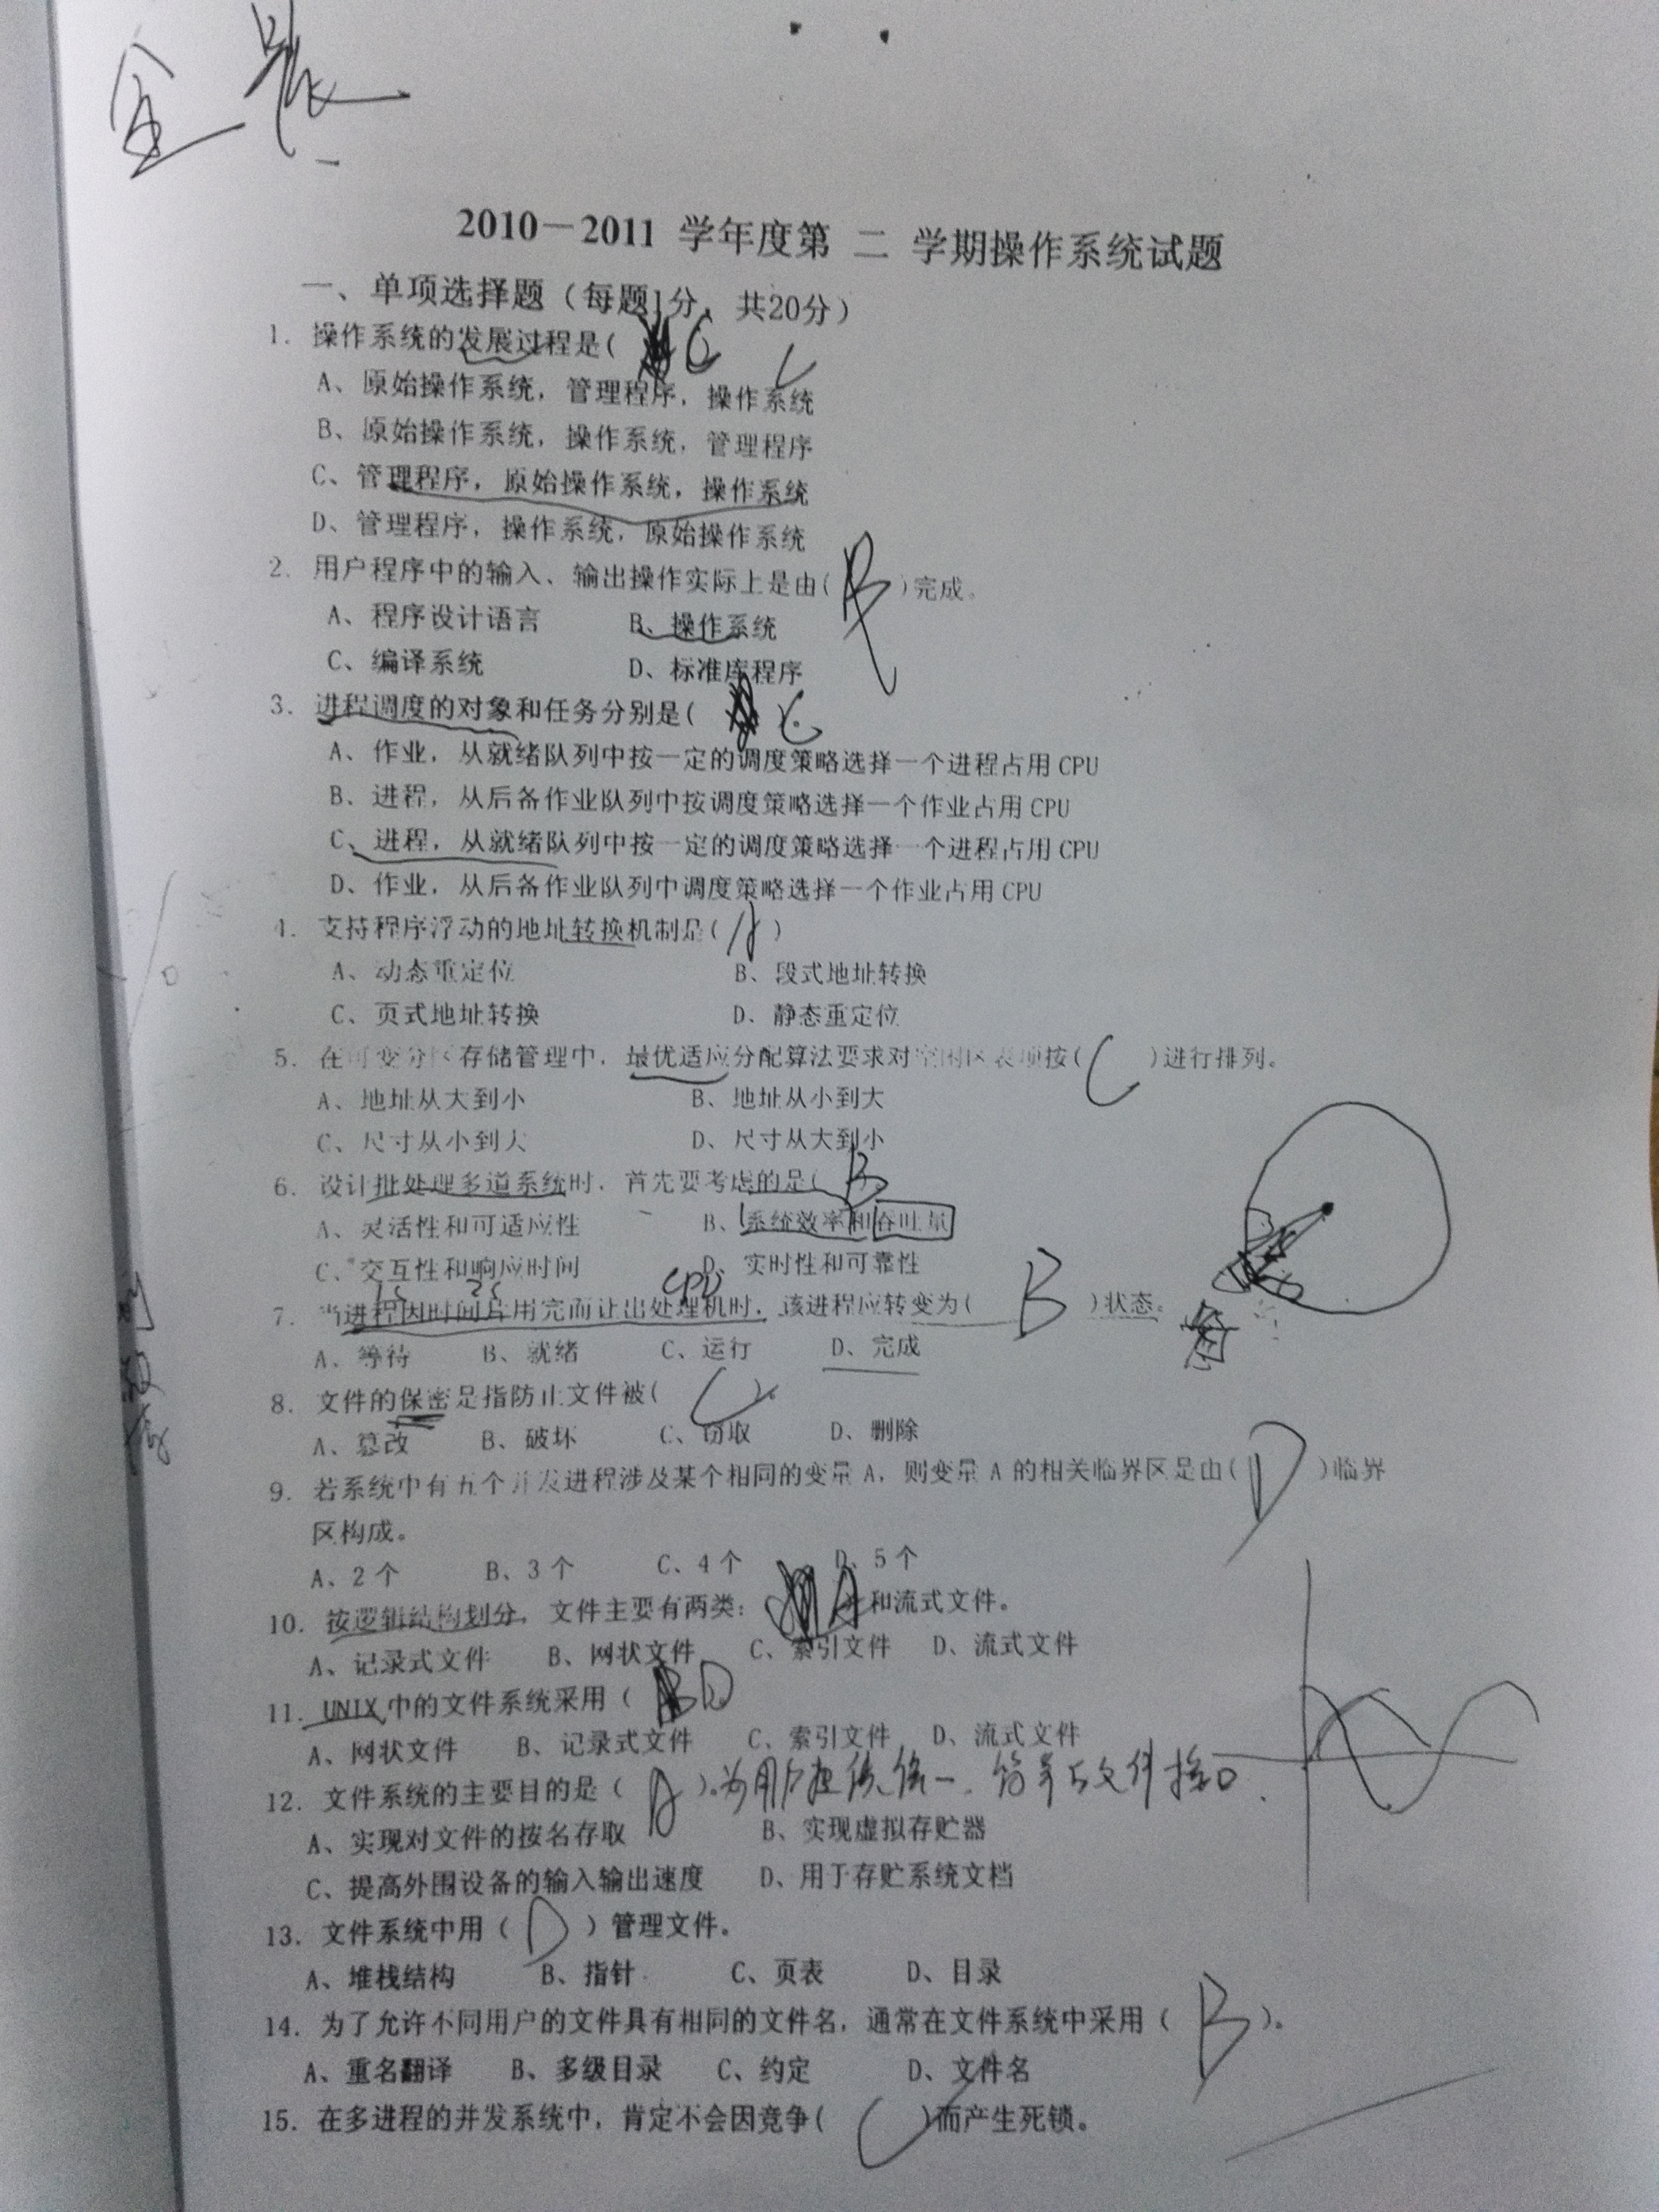 2010－2011 学年度第 二 学期操作系统试题
一、单项选择题（每题1分，共20分）
1. 操作系统的发展过程是( C
A、原始操作系统，管理程序，操作系统
B、原始操作系统，操作系统，管理程序
C、管理程序，原始操作系统，操作系统
D、管理程序，操作系统，原始操作系统
2. 用户程序中的输入、输出操作实际上是由( B )完成。
A、程序设计语言 B、操作系统
C、编译系统 D、标准库程序
3. 进程调度的对象和任务分别是( C ).
A、作业，从就绪队列中按一定的调度策略选择一个进程占用 CPU
B、进程，从后备作业队列中按调度策略选择一个作业占用 CPU
C、进程，从就绪队列中按一定的调度策略选择一个进程占用 CPU
D、作业，从后备作业队列中调度策略选择一个作业占用 CPU
4. 支持程序浮动的地址转换机制是( A )
A、动态重定位 B、段式地址转换
C、页式地址转换 D、静态重定位
5. 在可变分区存储管理中，最优适应分配算法要求对空闲区表项按( C )进行排列。
A、地址从大到小 B、地址从小到大
C、尺寸从小到大 D、尺寸从大到小
6. 设计批处理多道系统时，首先要考虑的是( B )。
A、灵活性和可适应性 B、系统效率和吞吐量
C、交互性和响应时间 D、实时性和可靠性
CPU
7. 当进程因时间片用完而让出处理机时，该进程应转变为( B )状态。
A、等待 B、就绪 C、运行 D、完成
8. 文件的保密是指防止文件被( C )。
A、篡改 B、破坏 C、窃取 D、删除
9. 若系统中有五个并发进程涉及某个相同的变量 A，则变量 A 的相关临界区是由( D )临界
区构成。
A、2 个 B、3 个 C、4 个 D、5 个
10. 按逻辑结构划分，文件主要有两类：( A 和流式文件。
A、记录式文件 B、网状文件 C、索引文件 D、流式文件
11. UNIX 中的文件系统采用（ D
A、网状文件 B、记录式文件 C、索引文件 D、流式文件
12. 文件系统的主要目的是（ A ）。为用户提供统一
A、实现对文件的按名存取 B、实现虚拟存贮器
C、提高外围设备的输入输出速度 D、用于存贮系统文档
13. 文件系统中用（ D ）管理文件。
A、堆栈结构 B、指针 C、页表 D、目录
14. 为了允许不同用户的文件具有相同的文件名，通常在文件系统中采用（ B ）。
A、重名翻译 B、多级目录 C、约定 D、文件名
15. 在多进程的并发系统中，肯定不会因竞争( C )而产生死锁。